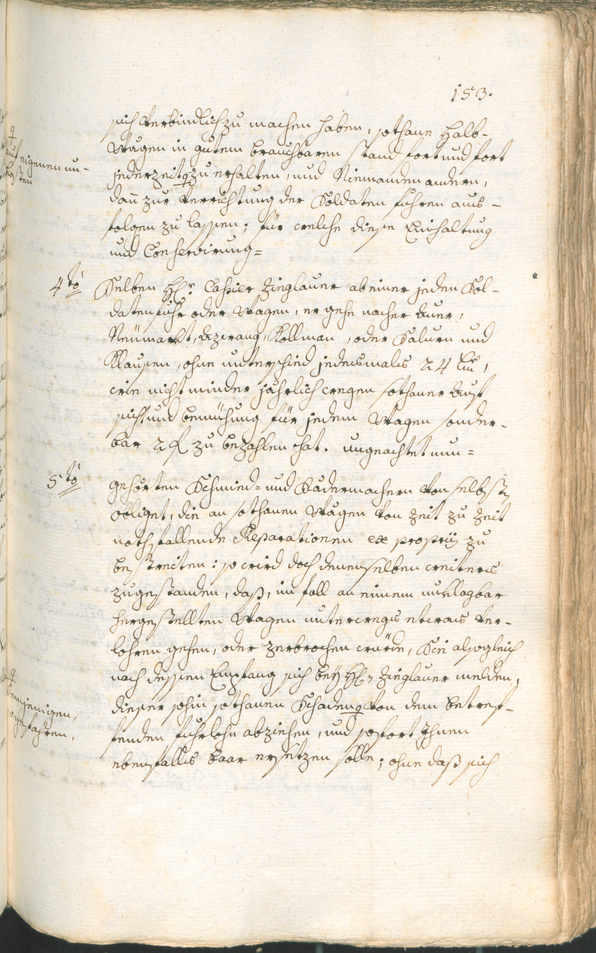 153.
sich verbindlich zu machen haben, sothane Halb-
Wägen in gutem brauchbaren stand fort und fort
jederzeit zu erhalten, und Niemanden andern,
dan zur Verrichtung der Soldaten fuhren aus-
folgen zu lassen; für welche diese Einhaltung
und Conservirung=
4to Selben Hr. Cassier Zieglauer ab einer jeden Sol-
daten fuhr oder Wagen, er gehe nacher Auer,
Neümarkt, Azwang, Kollman, oder Salurn und
Klausen, ohne unterschied jedesmals 24 kr,
wie nicht minder jährlich wegen sothaner Auf-
sicht und bemühung für jedem Wagen sonder-
bar 2 f zu bezahlen hat. ungeachtet nun=
5to gehörten Schmid- und Radermachern von selbsten
obliget, die an sothanen Wägen von Zeit zu Zeit
nothfallende Reparationen ex propriis zu
bestreiten: so wird doch denenselben weiters
zugestanden, daß, im fall an einem unklagbar
hergestellten Wagen unterwegs etwas ver-
lohren gehen, oder zerbrochen wurde, Sie alsogleich
nach dessen Empfang sich bey Hr. Zieglauer melden,
dieser sohin sothanen Schaden von dem betref-
fenden fuhrlohn abziehen, und sofort Ihnen
ebenfalls baar ersetzen solle; ohne daß sich
eigenen un-
denjenigen,